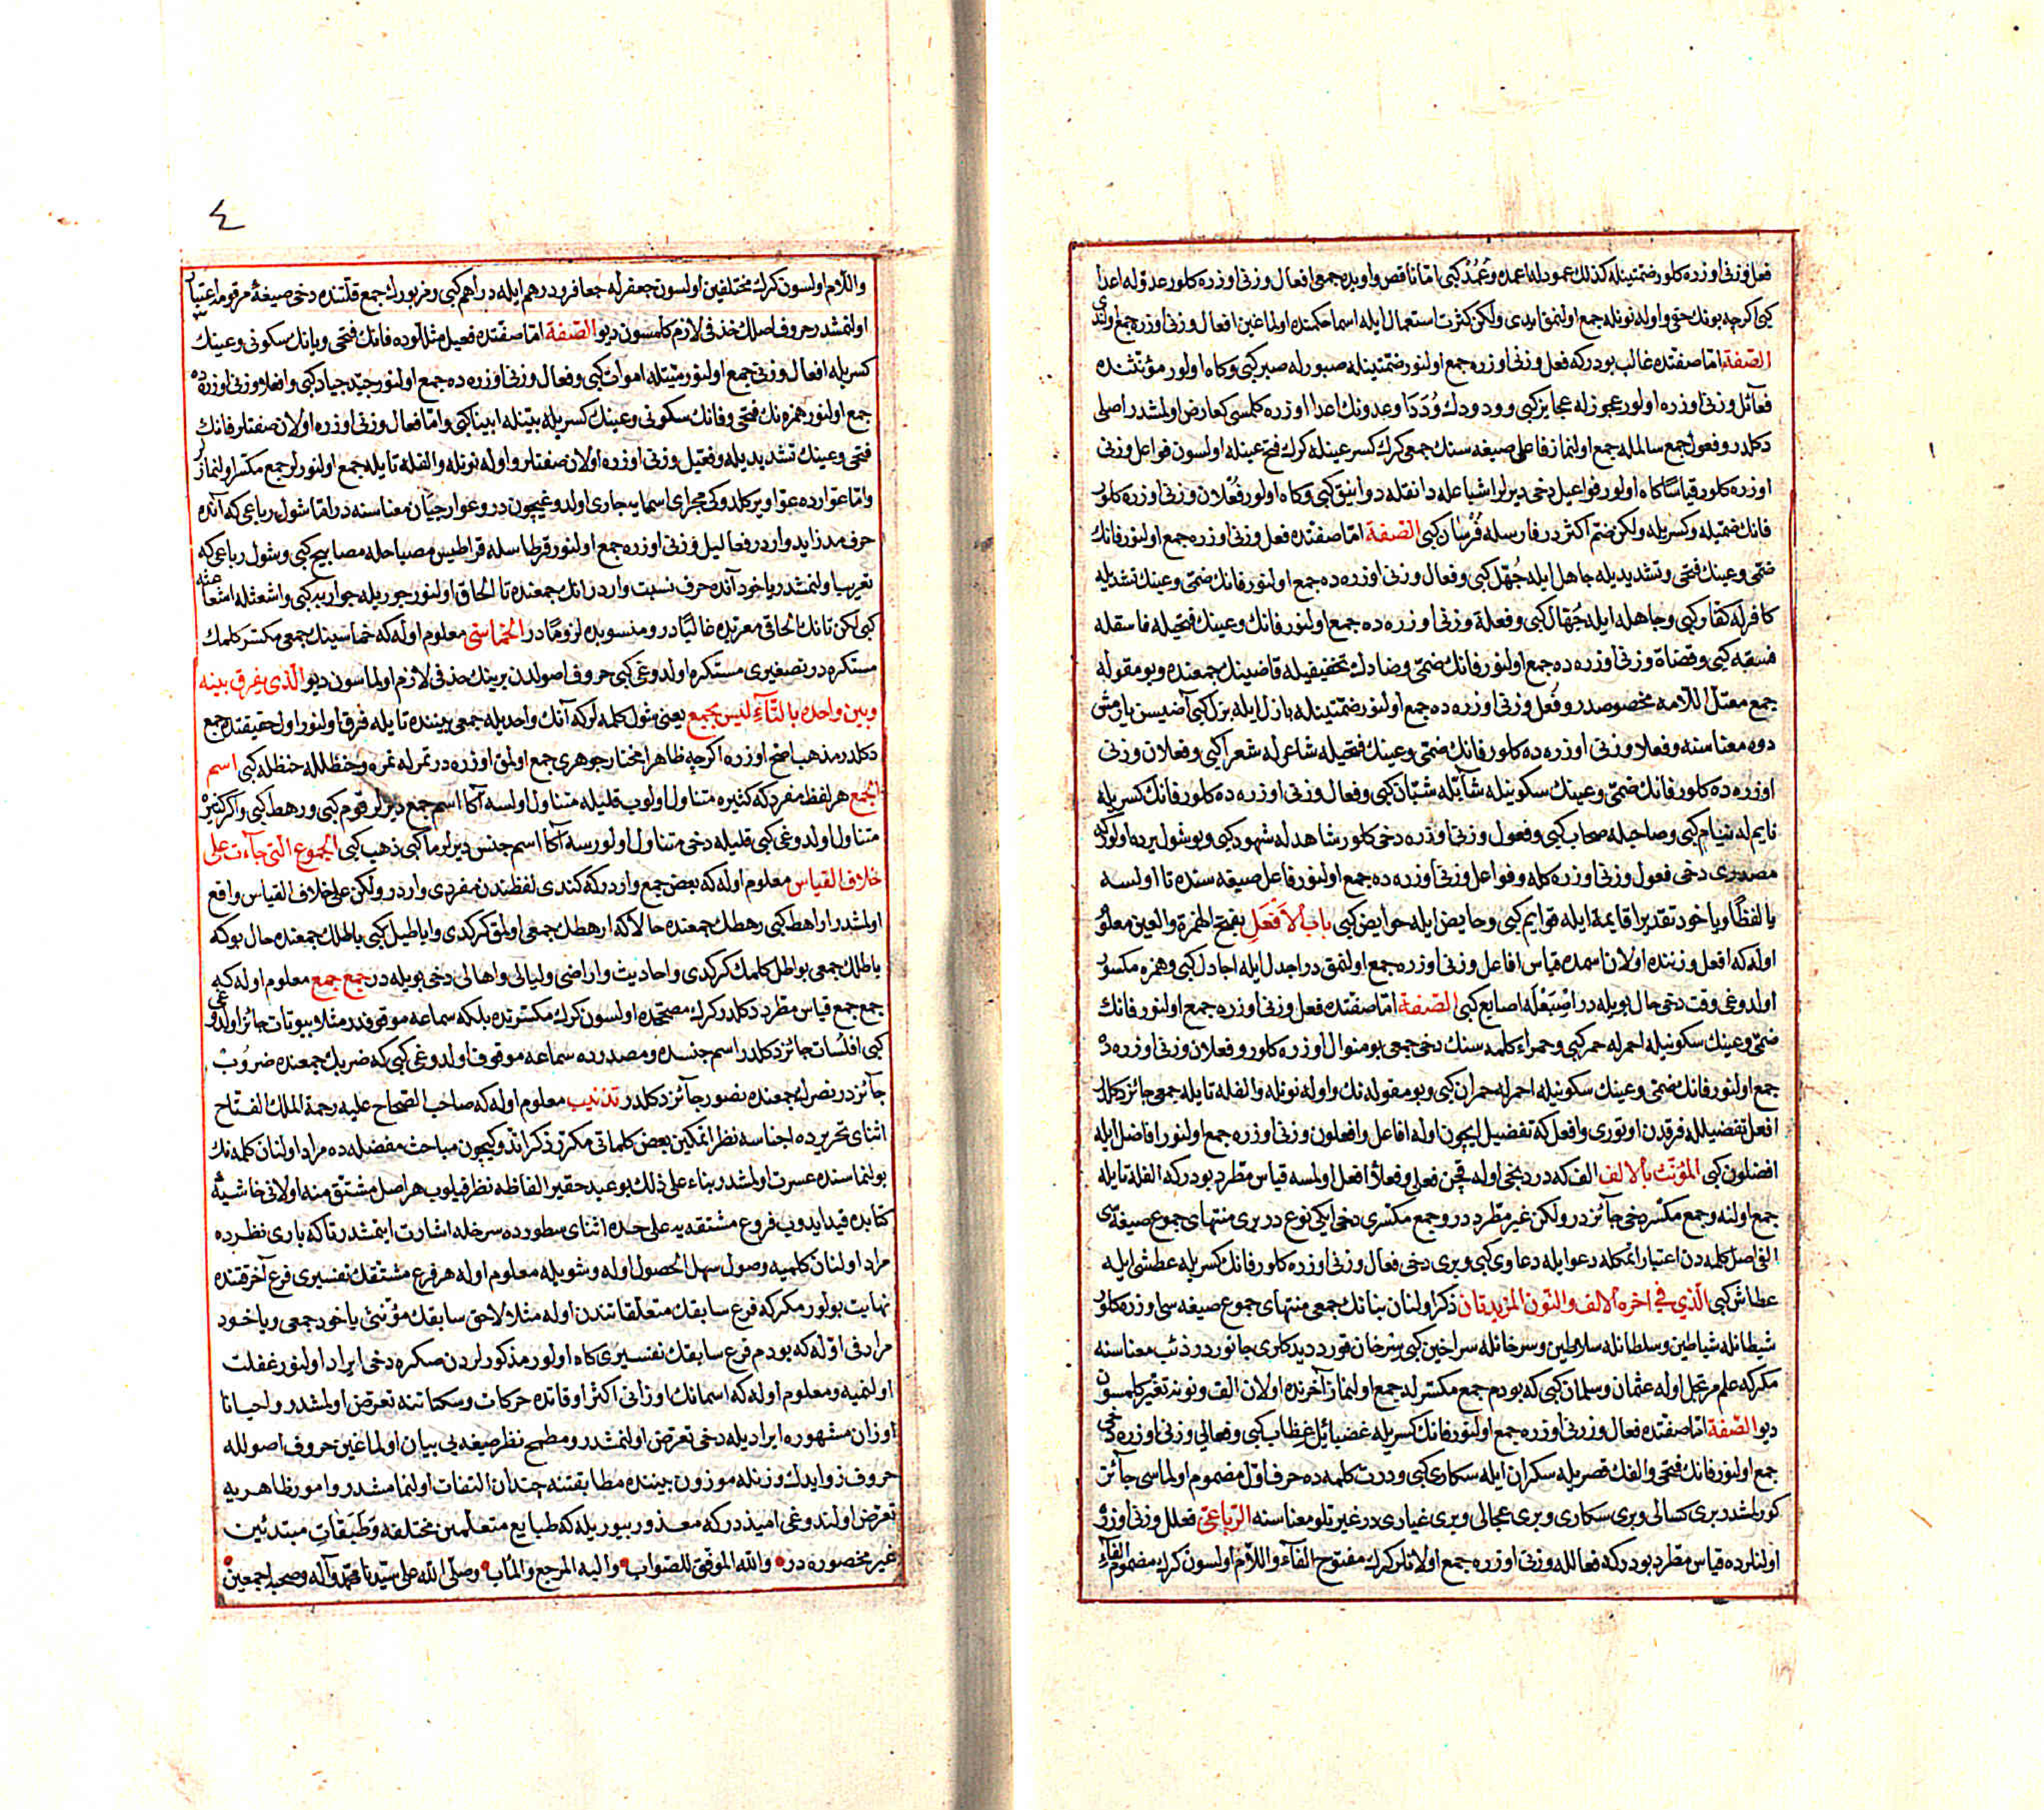 فعل وزنی اوزره کلور ضمتینله کذلك عمود له اعمده وَعُمُدْ کبی امّا ناقص واویده جمعی افعال وزنی اوزره کلور عدوّله اعدا
کبی اکرچه بونك حقی واوله نونله جمع اولنمق ایدی ولکن کثرت استعمال ایله اسما حکمنده اولماغین افعال وزنی اوزره جمع اولندی
الصّفة امّا صفتده غالب بودرکه فعل وزنی اوزره جمع اولنور ضمّتینله صبور له صبر کبی وکاه اولور مؤنّثنده
فعآئل وزنی اوزره اولور عجوزله عجایز کبی وودودك وُدَدَا وعدونك اعدا اوزره کلمسی کعارض اولمشدر اصلی
دکلدر وفعول جمع سالمله جمع اولنماز فاعل صیغه سنك جمعی کرك کسر عینله کرك فتح عینله اولسون فواعل وزنی
اوزره کلور قیاسًا کاه اولور فواعیل دخی دیرلر اشیاعله دانقله دوانیق کبی وکاه اولور فُعْلان وزنی اوزره کلور
فانك ضمّیله وکسریله ولکن ضم اکثردر فارسله فُرْسَان کبی الصّفة امّا صفتده فعل وزنی اوزره جمع اولنور فانك
ضمّی وعینك فتحی وتشدیدیله جاهل ایله جُهّل کبی وفعال وزنی اوزره ده جمع اولنور فانك ضمّی وعینك تشدیدیله
کافرله کفّار کبی وجاهله ایله جُهّال کبی وفعلة وزنی اوزره ده جمع اولنور فانك وعینك فتحیله فاسقله
فسقه کبی وقضاة وزنی اوزره ده جمع اولنور فانك ضمّی وضادك تخفیفیله قاضینك جمعنده وبو مقوله
جمع معتلّ اللّامه مخصوصدر وفُعل وزنی اوزره ده جمع اولنور ضمّتینله بازل ایله بزل کبی آضیسن یارمش
دوه معناسنه وفعلا وزنی اوزره ده کلور فانك ضمّی وعینك فتحیله شاعرله شعرا کبی وفعلان وزنی
اوزره ده کلور فانك ضمّی وعینك سکونیله شآبّله شبّان کبی وفعال وزنی اوزره ده کلور فانك کسریله
نایم له نیام کبی وصاحبله صحاب کبی وفعول وزنی اوزره دخی کلور شاهد له شهود کبی وبو شول یرده اولورکه
مصدری دخی فعول وزنی اوزره کله وفواعل وزنی اوزره ده جمع اولنور فاعل صیغه سنده تا اولسه
یا لفظًا ویاخود تقدیرا قایمة ایله قوایم کبی وحایض ایله حوایض کبی باب الاَفعَلِ بفتح الهمزة والعین معلوم
اوله که افعل وزننده اولان اسمده قیاس افاعل وزنی اوزره جمع اولنمق در اجدل ایله اجادل کبی وهمزه مکسور
اولدوغی وقت دخی حال بویله در اِصْبَعْلَه اصابع کبی الصّفة امّا صفتده فعل وزنی اوزره جمع اولنور فانك
ضمّی وعینك سکونیله احمرله حمر کبی وحمراء کلمه سنك دخی جمعی بو منوال اوزره کلور وفعلان وزنی اوزره ده
جمع اولنور فانك ضمّی وعینك سکونیله احمرله حمران کبی وبو مقوله نك واوله نونله والفله تایله جمعی جائز دکلدر
افعل تفضیللـه فرقدن اوتوری وافعل که تفضیل ایچون اوله افاعل وافعلون وزنی اوزره جمع اولنور افاضل ایله
افضلون کبی المؤنّث بالالف الف که دردنجی اوله قچن فعلی وفعلأ افعل اولمسه قیاس مطّرد بودرکه الفله تایله
جمع اولنه وجمع مکسّر دخی جآئز در ولکن غیر مطّرد در وجمع مکسّری دخی ایکی نوع در بری منتهای جموع صیغه سی
الفی اصل کلمه دن اعتبار اتمکله دعوا ایله دعاوی کبی وبری دخی فعال وزنی اوزره کلور فانك کسریله عطشی ایله
عطاش کبی الّذی فی اخره الالف والنون المزیدتان ذکر اولنان بنانك جمعی منتهای جموع صیغه سی اوزره کلور
شیطانله شیاطین وسلطانله سلاطین وسرخانله سراخین کبی سرخان قورد دیدکلری جانوردر ذئب معناسنه
مکرکه علم مرتجل اوله عثمان وسلمان کبی که بودم جمع مکسّرله جمع اولنماز آخرنده اولان الف ونونه تغیّر کلمسون
دیو الصّفة امّا صفتده فعال وزنی اوزره جمع اولنور فانك کسریله غضبا ئیل غِظاب کبی وفعالی وزنی اوزره دخی
جمع اولنور فانك فتحی والفك قصریله سکران ایله سکاری کبی ودرت کلمه ده حرف اوّل مضموم اولماسی جآئز
کورلمشدر بری کسالی وبری سکاری وبری عجالی وبری غیاری در غیرتلو معناسنه الرّباعیّ فعلل وزنی اوزره
اولنلرده قیاس مطّرد بودرکه فعالله وزنی اوزره جمع اولنلر کرك مفتوح الفآء واللّام اولسون کرك مضموم الفآء
٤
واللّام اولسون کرك مختلفین اولسون جعفرله جعافر ودرهم ایله دراهم کبی ومزبورك جمع قلّتنده دخی صیغهٔ مرقومه اعتبار
اولنمشدر حروف اصلك حذفی لازم کلمسون دیو الصّفة امّا صفتده فعیل مثللوده فانك فتحی ویانك سکونی وعینك
کسریله افعال وزنی جمع اولنور میّتله اموات کبی وفعال وزنی اوزره ده جمع اولنور جیّد جیاد کبی وافعلا وزنی اوزره ده
جمع اولنور همزه نك فتحی وفانك سکونی وعینك کسریله بیّنله ابینا کبی وامّا فعال وزنی اوزره اولان صفتلر فانك
فتحی وعینك تشدیدیله وفعیل وزنی اوزره اولان صفتلر واوله نونله والفله تایله جمع اولنورلر جمع مکسّر اولنمازلر
وامّا عوارده عواویر کلدوکی مجرای اسمایه جاری اولدوغیچون در وعوار جبان معناسنه در امّا شول رباعی که آنده
حرف مد زاید واردر فعالیل وزنی اوزره جمع اولنور قرطاسله قراطیس مصباحله مصابیح کبی وشول رباعی که
تعریب اولنمشدر یاخود آنده حرف نسبت واردر انك جمعنده تا الحاق اولنور جوربله جواربه کبی واشعثله اشعاعثه
کبی لکن تانك الحاقی معرّبده غالبًا در ومنسوبده لزومًا در الخماسیّ معلوم اوله که خماسینك جمعی مکسّر کلمك
مستکره در تصغیری مستکره اولدوغی کبی حروف اصولدن برینك حذفی لازم اولماسون دیو الّذی یفرق بینه
وبین واحده بالتّآءِ لیس بجمع یعنی شول کلمه لر که آنك واحدیله جمعی بیننده تایله فرق اولنور اول حقیقتده جمع
دکلدر مذهب اصح اوزره اکرچه ظاهرا مختار جوهری جمع اولمق اوزره در تمرله تمره وحنظلله حنظله کبی اسم
الجمع هر لفظ مفرد که کثیره متناول اولوب قلیله متناول اولسه آکا اسم جمع دیرلر قوم کبی ورهط کبی واکر کثیره
متناول اولدوغی کبی قلیله دخی متناول اولورسه آکا اسم جنس دیرلر ما کبی ذهب کبی الجموع الّتی جآءت علی
خلاف القیاس معلوم اوله که بعض جمع واردرکه کندی لفظندن مفردی واردر ولکن علی خلاف القیاس واقع
اولمشدر اراهط کبی رهطك جمعنده حالا که ارهطك جمعی اولمق کرکدی واباطیل کبی باطلك جمعنده حال بوکه
باطلك جمعی بواطل کلمك کرکدی واحادیث واراضی ولیالی واهالی دخی بویله در جمع جمع معلوم اوله که
جمع جمع قیاس مطّرد دکلدر کرك مصحّحده اولسون کرك مکسّرتده بلکه سماعه موقوفدر مثلا بیوتات جائز اولدوغی
کبی افلُسات جائز دکلدر اسم جنسده ومصدرده سماعه موقوف اولدوغی کبی که ضربك جمعنده ضروُبْ
جآئزدر نصرك جمعنده نصور جآئز دکلدر تذنیب معلوم اوله که صاحب الصّحاح علیه رحمة الملك الفتّاح
اثنای تحریرده اجناسه نظر اتمکین بعض کلماتی مکرّر ذکر اتدوکیچون مباحث مفضله ده مراد اولنان کلمه نك
بولنماسنده عسرت اولمشدر بناء علی ذلك بو عبد حقیر الفاظه نظر قیلوب هر اصل مشتق منه اولانی خاشیهٔ
کتابده قید ایدوب فروع مشتقه یه علی حده اثنای سطورده سرخله اشارت ایتمشدر تاکه باری نظرده
مراد اولنان کلمیه وصول سهل الحصول اوله وشویله معلوم اوله هر فرع مشتقك تفسیری فرع آخرقتنده
نهایت بولور مکر که فرع سابقك متعلّقاتندن اوله مثلا لاحق سابقك مؤنّثی یاخود جمعی ویاخود
مرادفی اوله که بودم فرع سابقك تفسیری کاه اولور مذکورلردن صکره دخی ایراد اولنور غفلت
اولنمیه ومعلوم اوله که اسمانك اوزانی اکثر اوقاتده حرکات وسکناتنه تعرّض اولمشدر واحیانا
اوزان مشهوره ایرادیله دخی تعرّض اولنمشدر ومطمح نظر صیغه یی بیان اولماغین حروف اصولله
حروف زوایدك وزنله موزون بیننده مطابقتنه چندان التفات اولنمامشدر وامور ظاهریه
تعرّض اولندوغی امیددرکه معذور بیوریله که طبایع متعلّمین مختلفه وطبقات مبتدئین
غیر محصوره در والله الموفّق للصّواب والیه المرجع والمآب وصلّی الله علی سیّدنا محمّد وآله وصحبه اجمعین